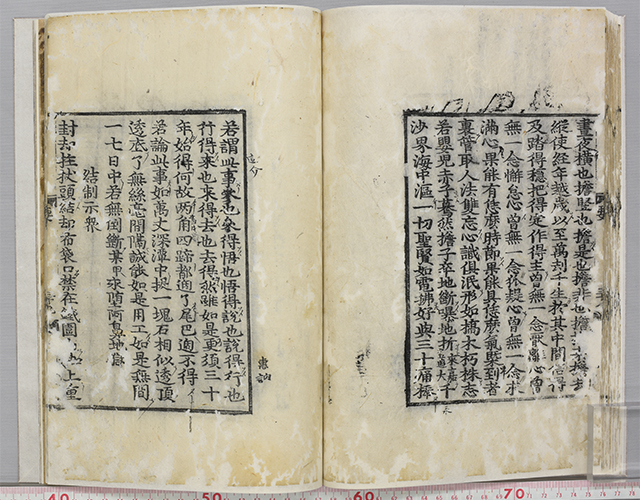 晝夜橫也擔竪也擔是也擔非也擔
縱使經年越歲以至萬劫千生於其中間信得
及踏得穩把得定作得主曾無一念猒離心曾
無一念懈怠心曾無一念狐疑心曾無一念求
滿心果能有恁麽時節果能具恁麽氣槩到者
裏管取人法雙忘心識俱泯形如槁木朽株志
若嬰兒赤子驀然擔子卒地斷嚗地折
千
沙界海中漚一切聖賢如電拂好與三十痛棒
若謂此事叅也叅得悟也悟得說也說得行也
行得來也來得去也去得然雖如是更須三十
年始得何故兩角四蹄都過了尾巴過不得
若論此事如萬丈深潭中投一塊石相似透頂
透底了無絲毫間隔誠能如是用工如是無間
一七日中若無倒斷某甲永墮阿鼻地獄
結制示衆
封却拄杖頭結却布袋口禁在圍
上重
40 50 60 70